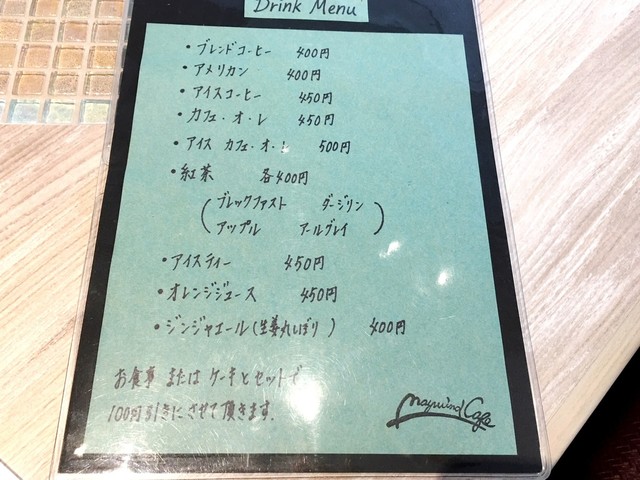 Drink Menu
・ブレンドコーヒー 400円
・アメリカン 400円
・アイスコーヒー 450円
・カフェ・オ・レ 450円
・アイス カフェ・オ・レ 500円
・紅茶 各400円
(ブレックファスト ダージリン
アップル アールグレイ)
・アイスティー 450円
・オレンジジュース 450円
・ジンジャエール(生姜丸しぼり) 400円
お食事 または ケーキとセットで
100円引きにさせて頂きます.
Maywind Cafe